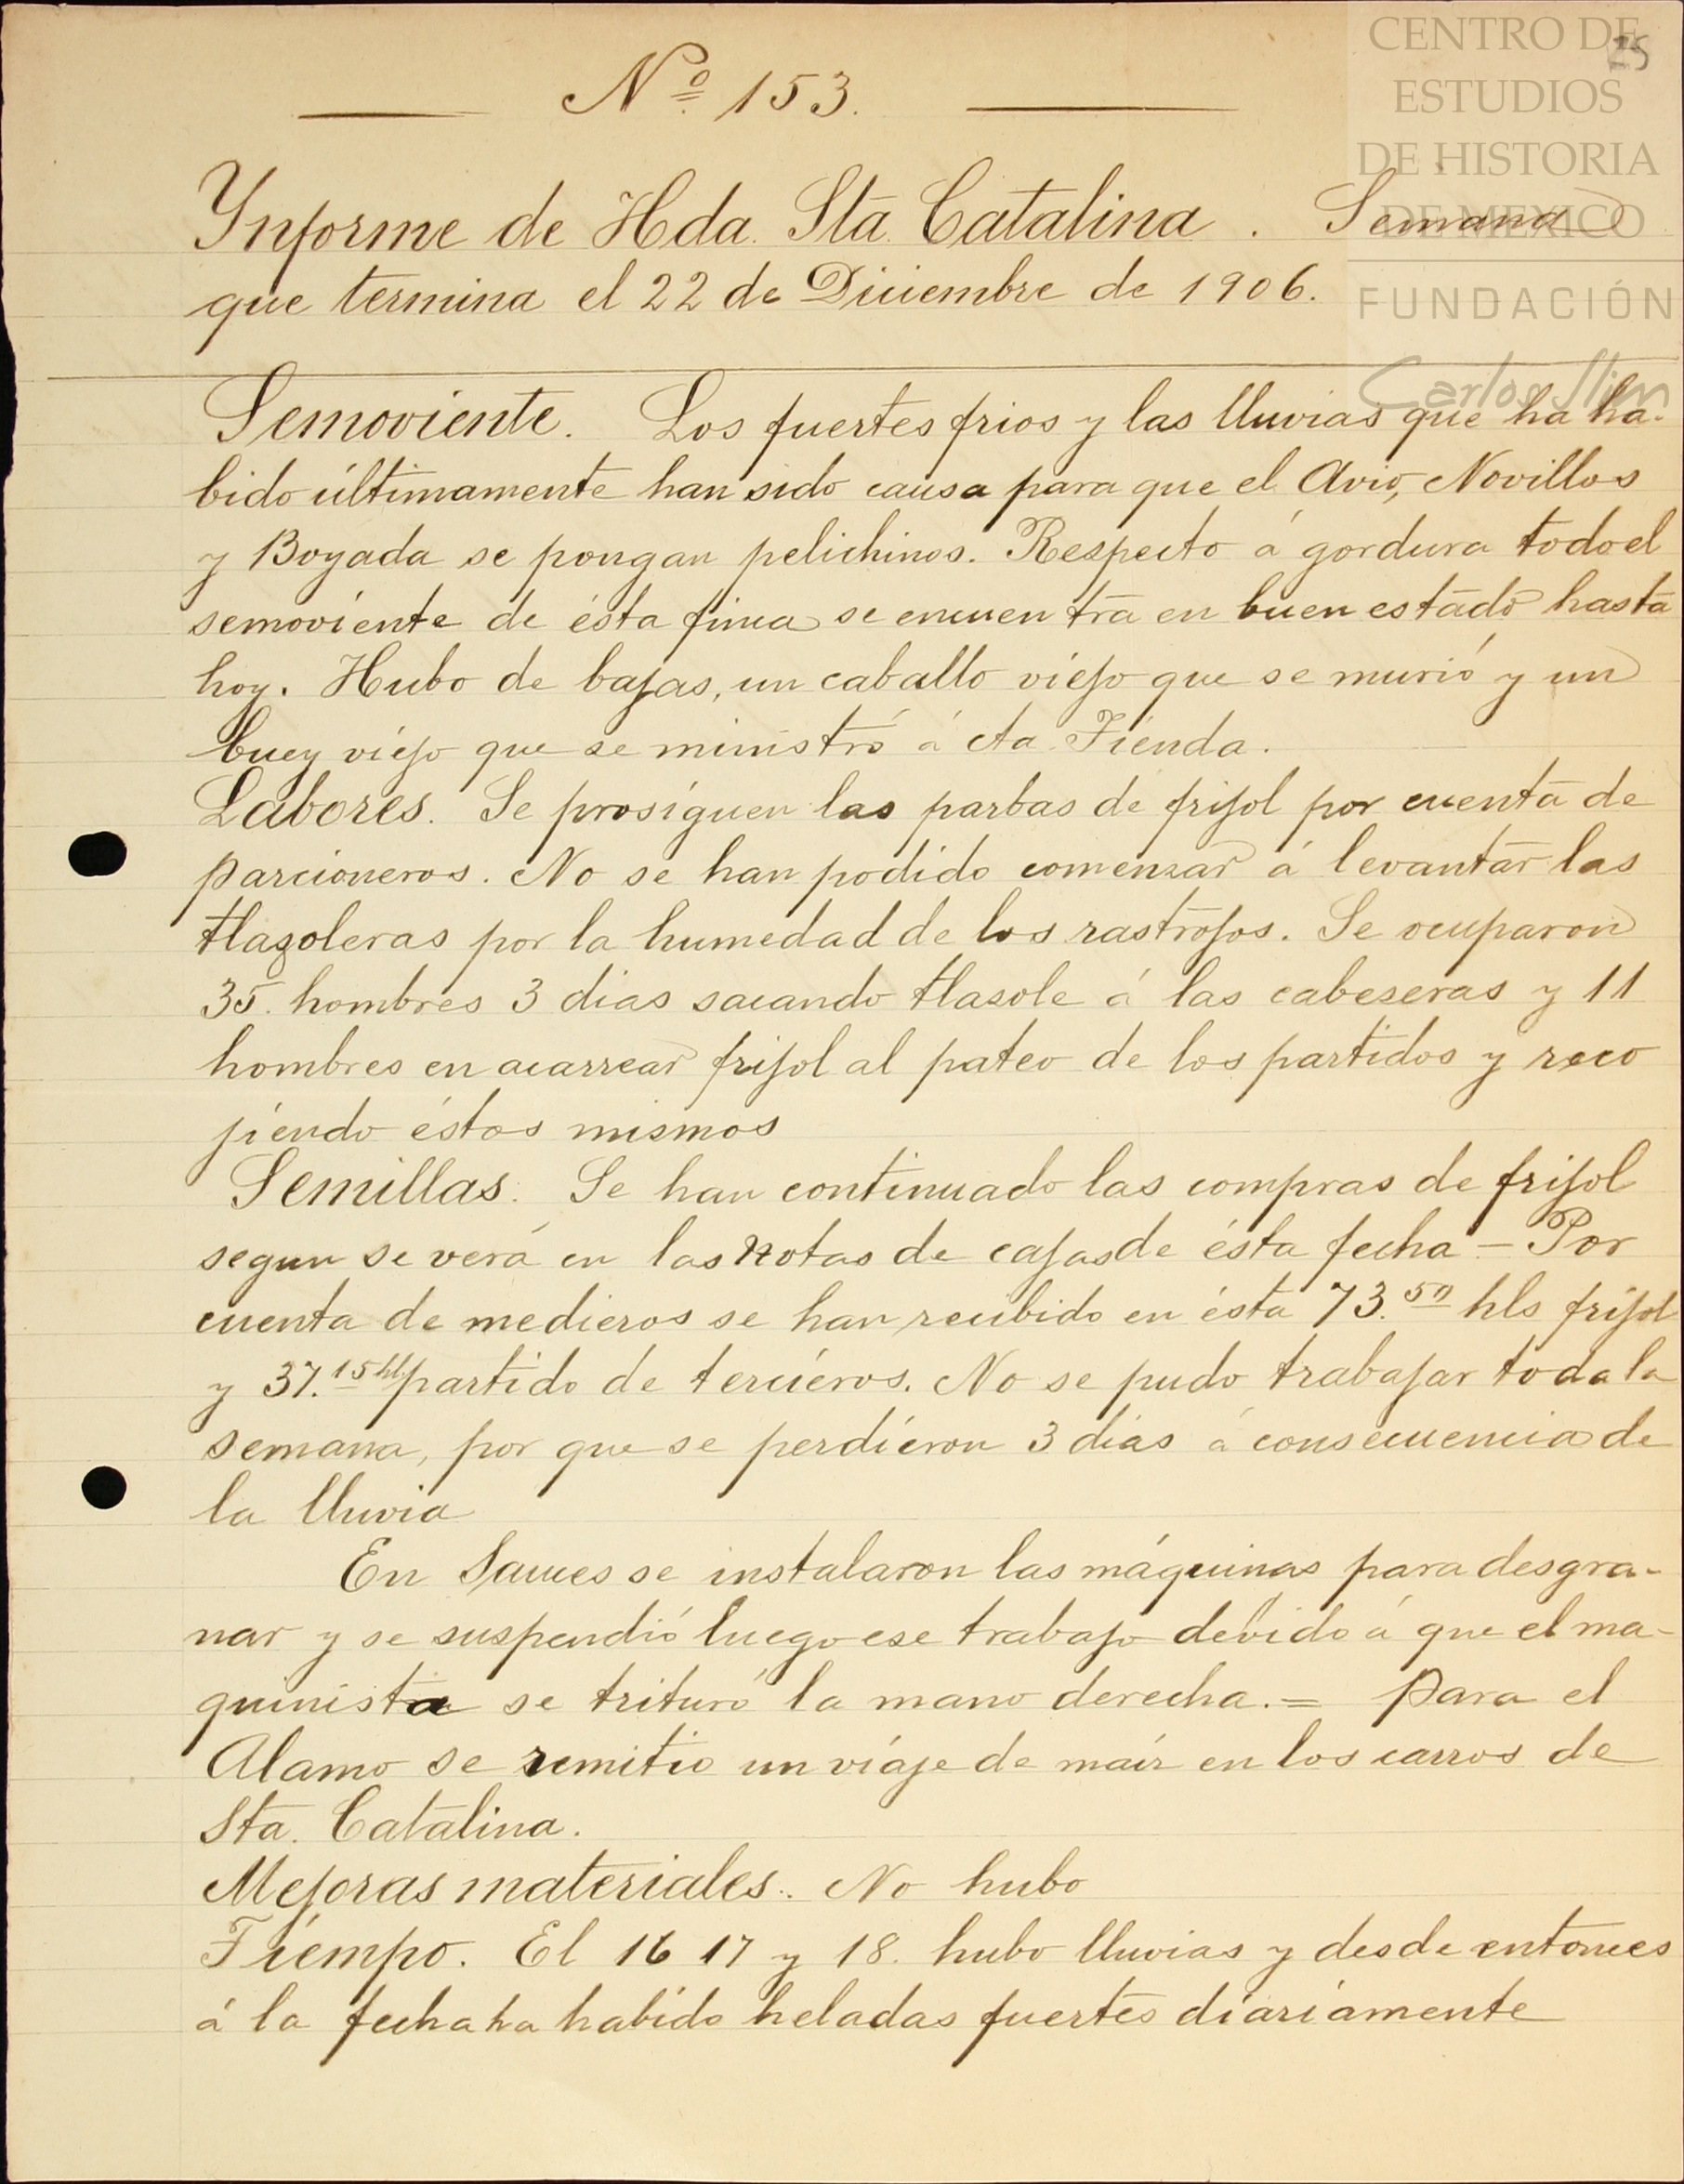 CENTRO DE
ESTUDIOS
DE HISTORIA
DE MEXICO
FUNDACIÓN
Carlos Slim
Nº 153.
Ynforme de Hda. Sta. Catalina. Semana
que termina el 22 de Diciembre de 1906.
Semoviente. Los fuertes frios y las lluvias que ha ha-
bido últimamente han sido causa para que el Avio, Novillos
y Boyada se pongan pelichinos. Respecto á gordura todo el
semoviente de ésta finca se encuentra en buen estado hasta
hoy. Hubo de bajas, un caballo viejo que se murió y un
buey viejo que se ministró á cta. Tienda.
Labores. Se prosiguen las parbas de frijol por cuenta de
parcioneros. No se han podido comenzar á levantar las
tlazoleras por la humedad de los rastrojos. Se ocuparon
35. hombres 3 dias sacando tlasole á las cabeseras y 11
hombres en acarrear frijol al pateo de los partidos y reco
jiendo éstos mismos
Semillas. Se han continuado las compras de frijol
segun se verá en las Notas de cajas de ésta fecha – Por
cuenta de medieros se han recibido en ésta 73.50 hls frijol
y 37.15 hl partido de tercieros. No se pudo trabajar toda la
semana, por que se perdieron 3 dias á consecuencia de
la lluvia
En Sauces se instalaron las máquinas para desgra-
nar y se suspendió luego ese trabajo debido á que el ma-
quinista se trituró la mano derecha. = Para el
Alamo se remitio un viaje de maiz en los carros de
Sta. Catalina.
Mejoras materiales.. No hubo
Tiempo. El 16 17 y 18. hubo lluvias y desde entonces
á la fecha ha habido heladas fuertes diariamente